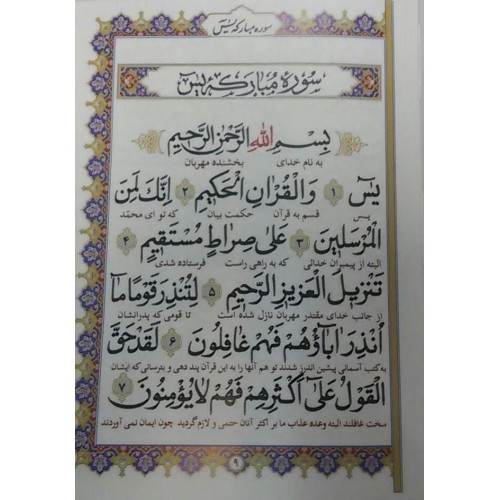 سوره مبارکه یس
سوره مبارکه یس
بِسْمِ اللهِ الرَّحْمٰنِ الرَّحيمِ
به نام خدای بخشنده مهربان
يٰسٓ ١ وَالْقُرْاٰنِ الْحَكيمِ ٢ اِنَّكَ لَمِنَ
یس قسم به قرآن حکمت بیان که تو ای محمد
الْمُرْسَلينَ ٣ عَلىٰ صِراطٍ مُسْتَقيمٍ ۴
البته از پیمبران خدائی که به راهی راست فرستاده شدی
تَنْزيلَ الْعَزيزِ الرَّحيمِ ۵ لِتُنْذِرَ قَوْمًا مآ
از جانب خدای مقتدر مهربان نازل شده است تا قومی که پدرانشان
اُنْذِرَ اٰبآؤُهُمْ فَهُمْ غافِلُونَ ۶ لَقَدْ حَقَّ
به کتب آسمانی پیشین اندرز شدند تو هم آنها را به این قرآن پند دهی و بترسانی که ایشان
الْقَوْلُ عَلىٰٓ اَكْثَرِهِمْ فَهُمْ لايُؤْمِنُونَ ٧
سخت غافلند البته وعده عذاب ما بر اکثر آنان حتمی و لازم گردید چون ایمان نمی آوردند
٩